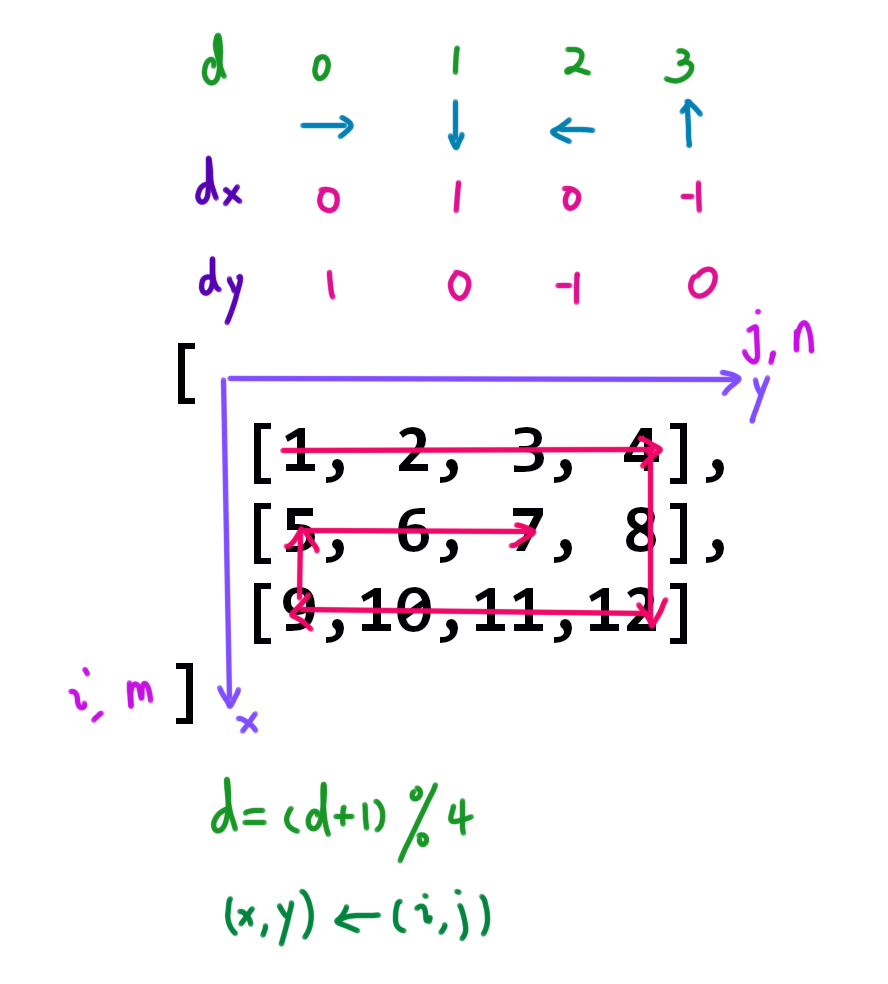 d 0 1 2 3
→ ↓ ← ↑
dx 0 1 0 -1
dy 1 0 -1 0
j, n
[
y
[1, 2, 3, 4],
[5, 6, 7, 8],
[9,10,11,12]
i, m ]
x
d=(d+1)%4
(x,y)←(i,j)